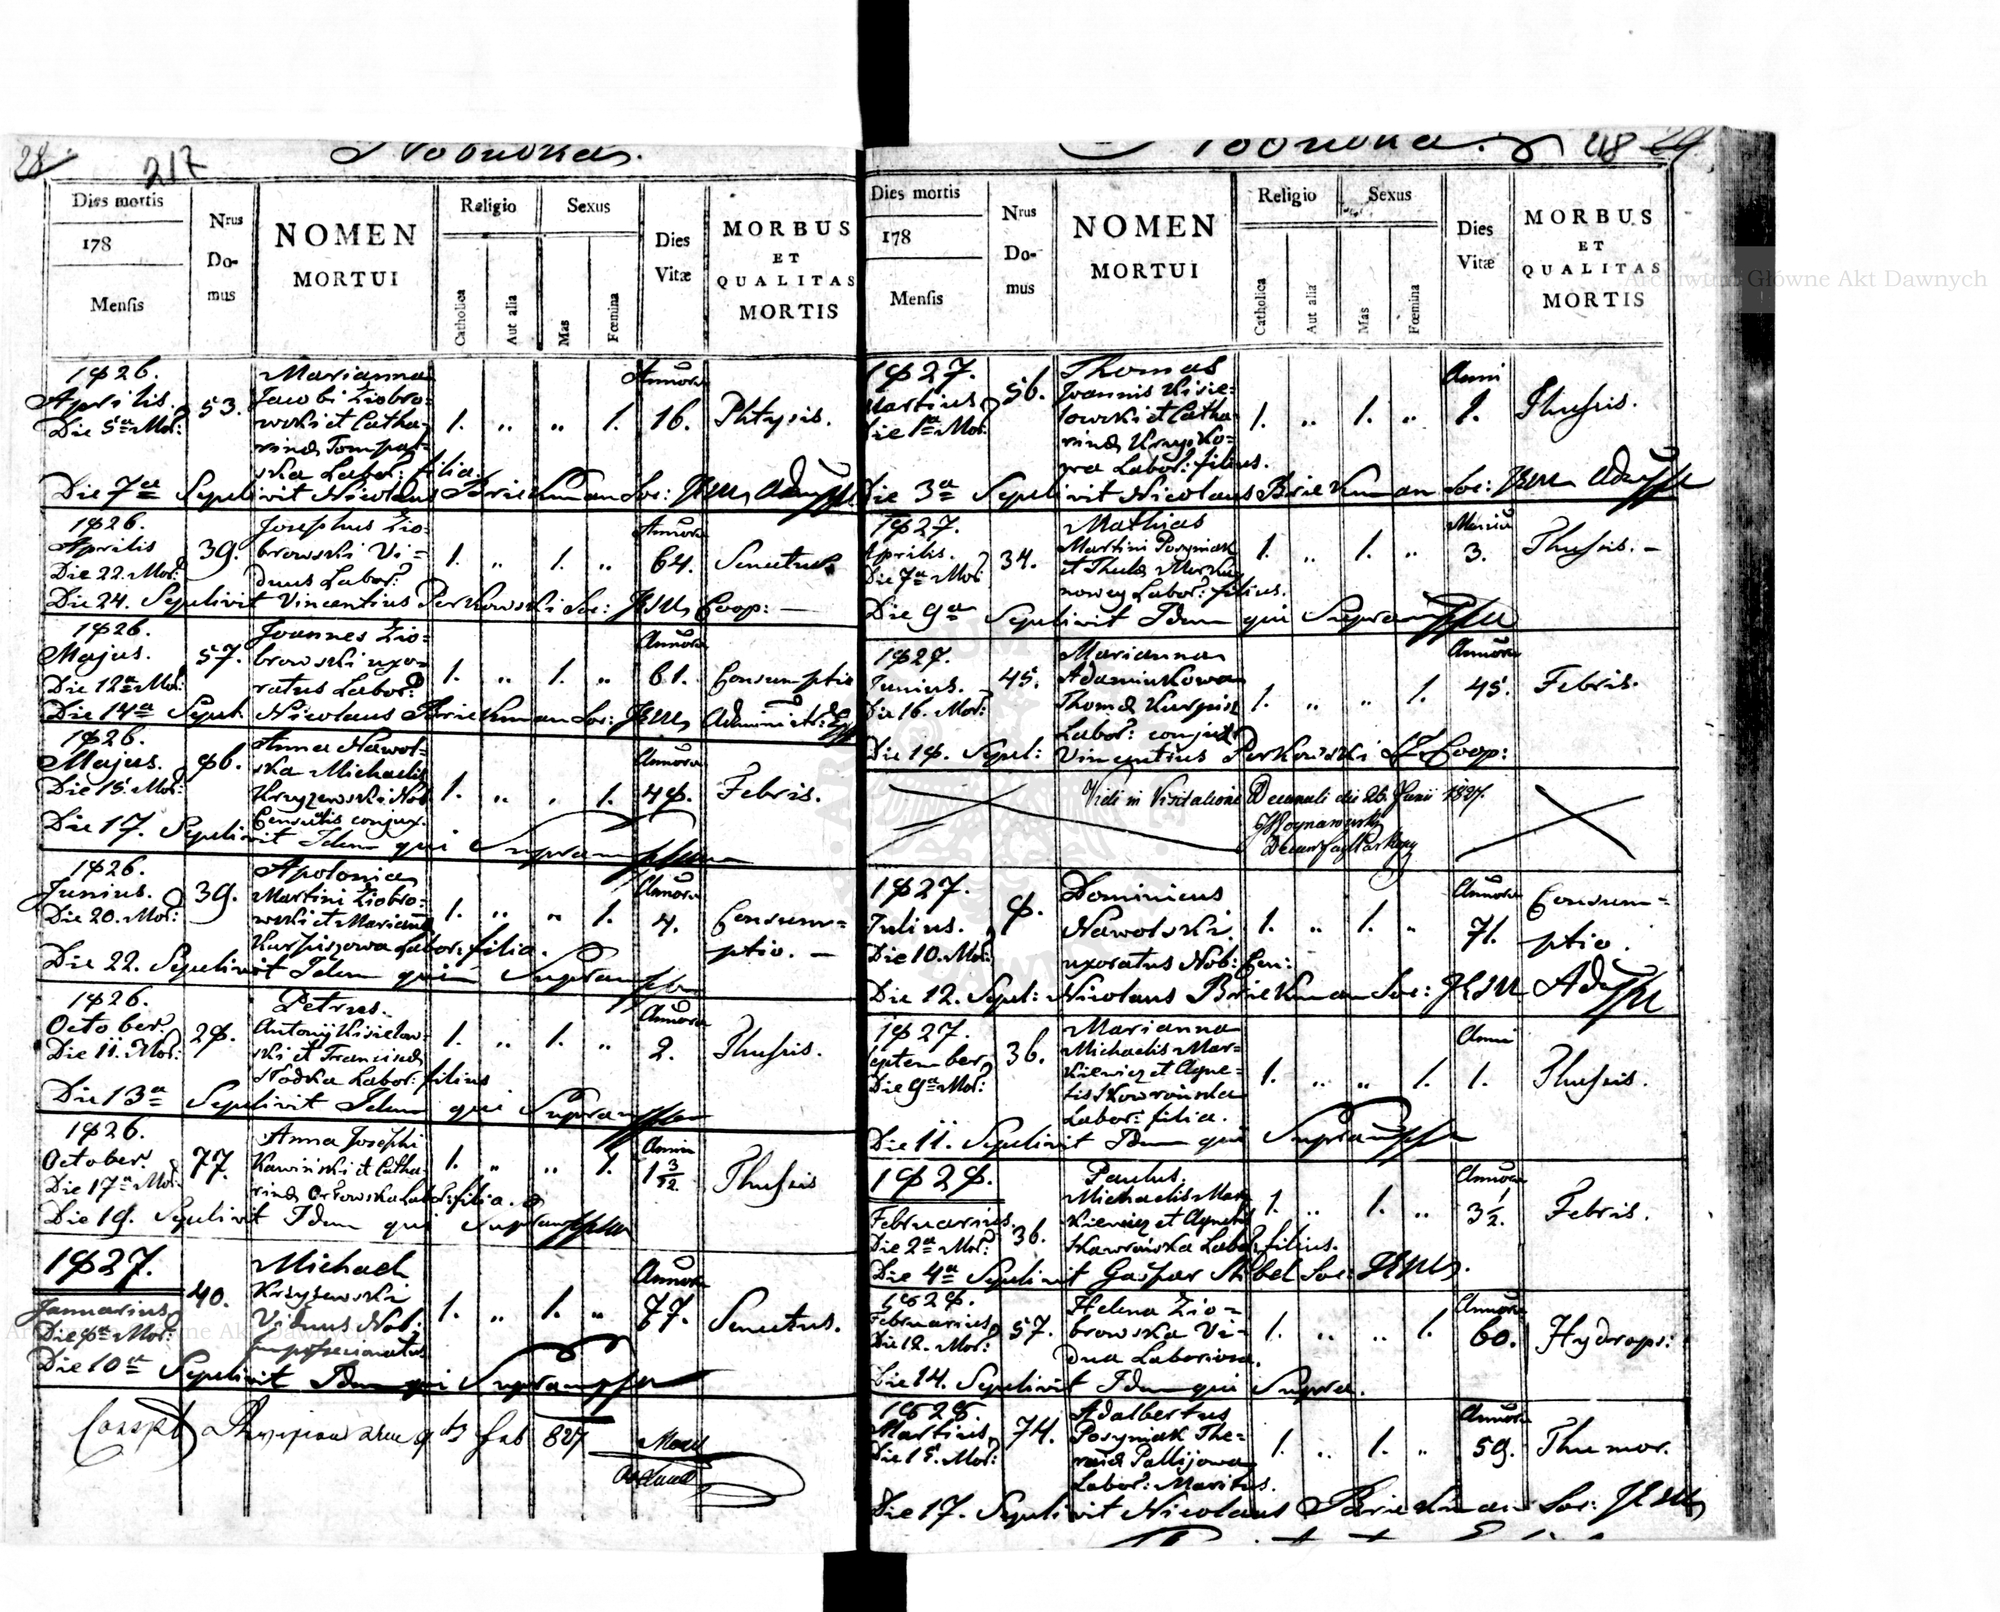 28
217
Dies mortis
178
Mensis
Nrus
Do-
mus
NOMEN
MORTUI
Religio
Catholica
Aut alia
Sexus
Mas
Fœmina
Dies
Vitæ
MORBUS
ET
QUALITAS
MORTIS
1826.
Aprilis.
Die 5ta Mor:
53.
Marianna
Jacobi Ziobro-
wski et Catha-
rina
Labor: filia.
1. „ „ 1.
Annorum
16.
Phtysis.
Die 7a Sepelivit Nicolaus Brickman Soc: Jesu
1826.
Aprilis
Die 22. Mor:
39.
Josephus Zio-
browski Vi-
duus Labor:
1. „ 1. „
Annorum
64.
Senectus
Die 24. Sepelivit Vincentius Perkowski Soc: Jesu Coop: —
1826.
Majus.
Die 12a Mor:
57.
Joannes Zio-
browski uxo-
ratus Labor:
1. „ 1. „
Annorum
61.
Consumptio
Die 14a Sepel: Nicolaus Brickman Soc: Jesu Administr:
1826.
Majus.
Die 15. Mor:
86.
Anna Nawol-
ska Michaelis
Krzyzewski Nob
Censualis conjux.
1. „ „ 1.
Annorum
48.
Febris.
Die 17. Sepelivit Idem qui Supra
1826.
Junius.
Die 20. Mor:
39.
Apolonia
Martini Ziobro-
wski et Marianna
Kurpiszowa Labor: filia.
1. „ „ 1.
Annorum
4.
Consum-
ptio. —
Die 22. Sepelivit Idem qui Supra
1826.
October.
Die 11. Mor:
28.
Petrus
Antonij Kisielow-
ski et Francisca
Labor: filius
1. „ 1. „
Annorum
2.
Thussis.
Die 13a Sepelivit Idem qui Supra
1826.
October.
Die 17a Mor:
77.
Anna Josephi
Kawinski et Catha-
rina Orłowska Labor: filia.
1. „ „ 1.
Anni
1 3/12
Thussis
Die 19. Sepelivit Idem qui Supra
1827.
Januarius
Die 8a Mor:
40.
Michael
Krzyzewski
Viduus Nob:
impossessionatus
1. „ 1. „
Annorum
77.
Senectus.
Die 10a Sepelivit Idem qui Supra
827
218 29
Dies mortis
178
Mensis
Nrus
Do-
mus
NOMEN
MORTUI
Religio
Catholica
Aut alia
Sexus
Mas
Fœmina
Dies
Vitæ
MORBUS
ET
QUALITAS
MORTIS
1827.
Martius
Die 1a Mor:
56.
Thomas
Joannis Kisie-
lowski et Catha-
rina
Labor: filius.
1. „ 1. „
Anni
1.
Thussis.
Die 3a Sepelivit Nicolaus Brickman Soc: Jesu
1827.
Aprilis.
Die 7a Mor:
34.
Mathias
Martini Posyniak
et Thecla
Labor: filius.
1. „ 1. „
3.
Thussis. —
Die 9a Sepelivit Idem qui Supra
1827.
Junius.
Die 16. Mor:
45.
Marianna
Adamiukowa
Thomæ
Labor: conjux
1. „ „ 1.
Annorum
45.
Febris.
Die 18. Sepel: Vincentius Perkowski Coop:
Vidi in Visitatione Decanali die 26. Junii 1827.
1827.
Julius.
Die 10. Mor:
8.
Dominicus
Nawolski
uxoratus Nob: Cen:
1. „ 1. „
Annorum
71.
Consum-
ptio.
Die 12. Sepel: Nicolaus Brickman Soc: Jesu
1827.
September
Die 9a Mor:
36.
Marianna
Michaelis Mar-
kiewicz et Agne-
tis Skowrońska
Labor: filia.
1. „ „ 1.
Anni
1.
Thussis.
Die 11. Sepelivit Idem qui Supra
1828.
Februarius.
Die 2a Mor:
36.
Paulus
Michaelis Mar
kiewicz et Agnetis
Skowrońska Labor: filius.
1. „ 1. „
Annorum
3 1/2.
Febris.
Die 4a Sepelivit Gaspar Soc: Jesu.
1828.
Februarius
Die 12. Mor:
57.
Helena Zio-
browska Vi-
dua Laboriosa.
1. „ „ 1.
Annorum
60.
Hydrops:
Die 14. Sepelivit Idem qui Supra.
1828.
Martius
Die 15. Mor:
74.
Adalbertus
Posyniak The-
resia Pallijowa
Labor: Maritus.
1. „ 1. „
Annorum
59.
Thumor.
Die 17. Sepelivit Nicolaus Brickman Soc: Jesu
Archiwum Główne Akt Dawnych
Archiwum Główne Akt Dawnych